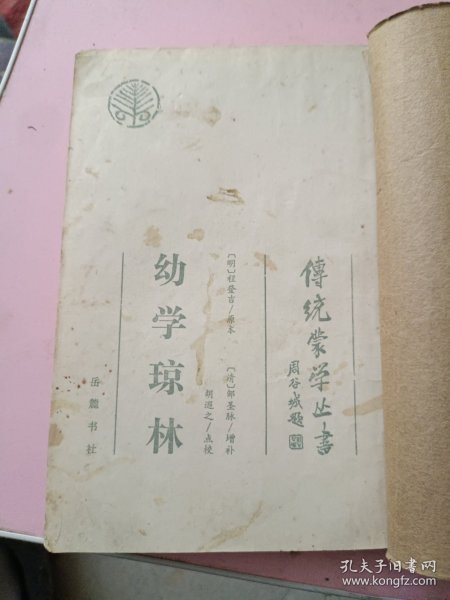 傳統蒙学丛書
周谷城题
〔明〕程登吉/原本
〔清〕邹圣脉/增补
胡遐之/点校
幼学琼林
岳麓书社
孔夫子旧书网
www.kongfz.com